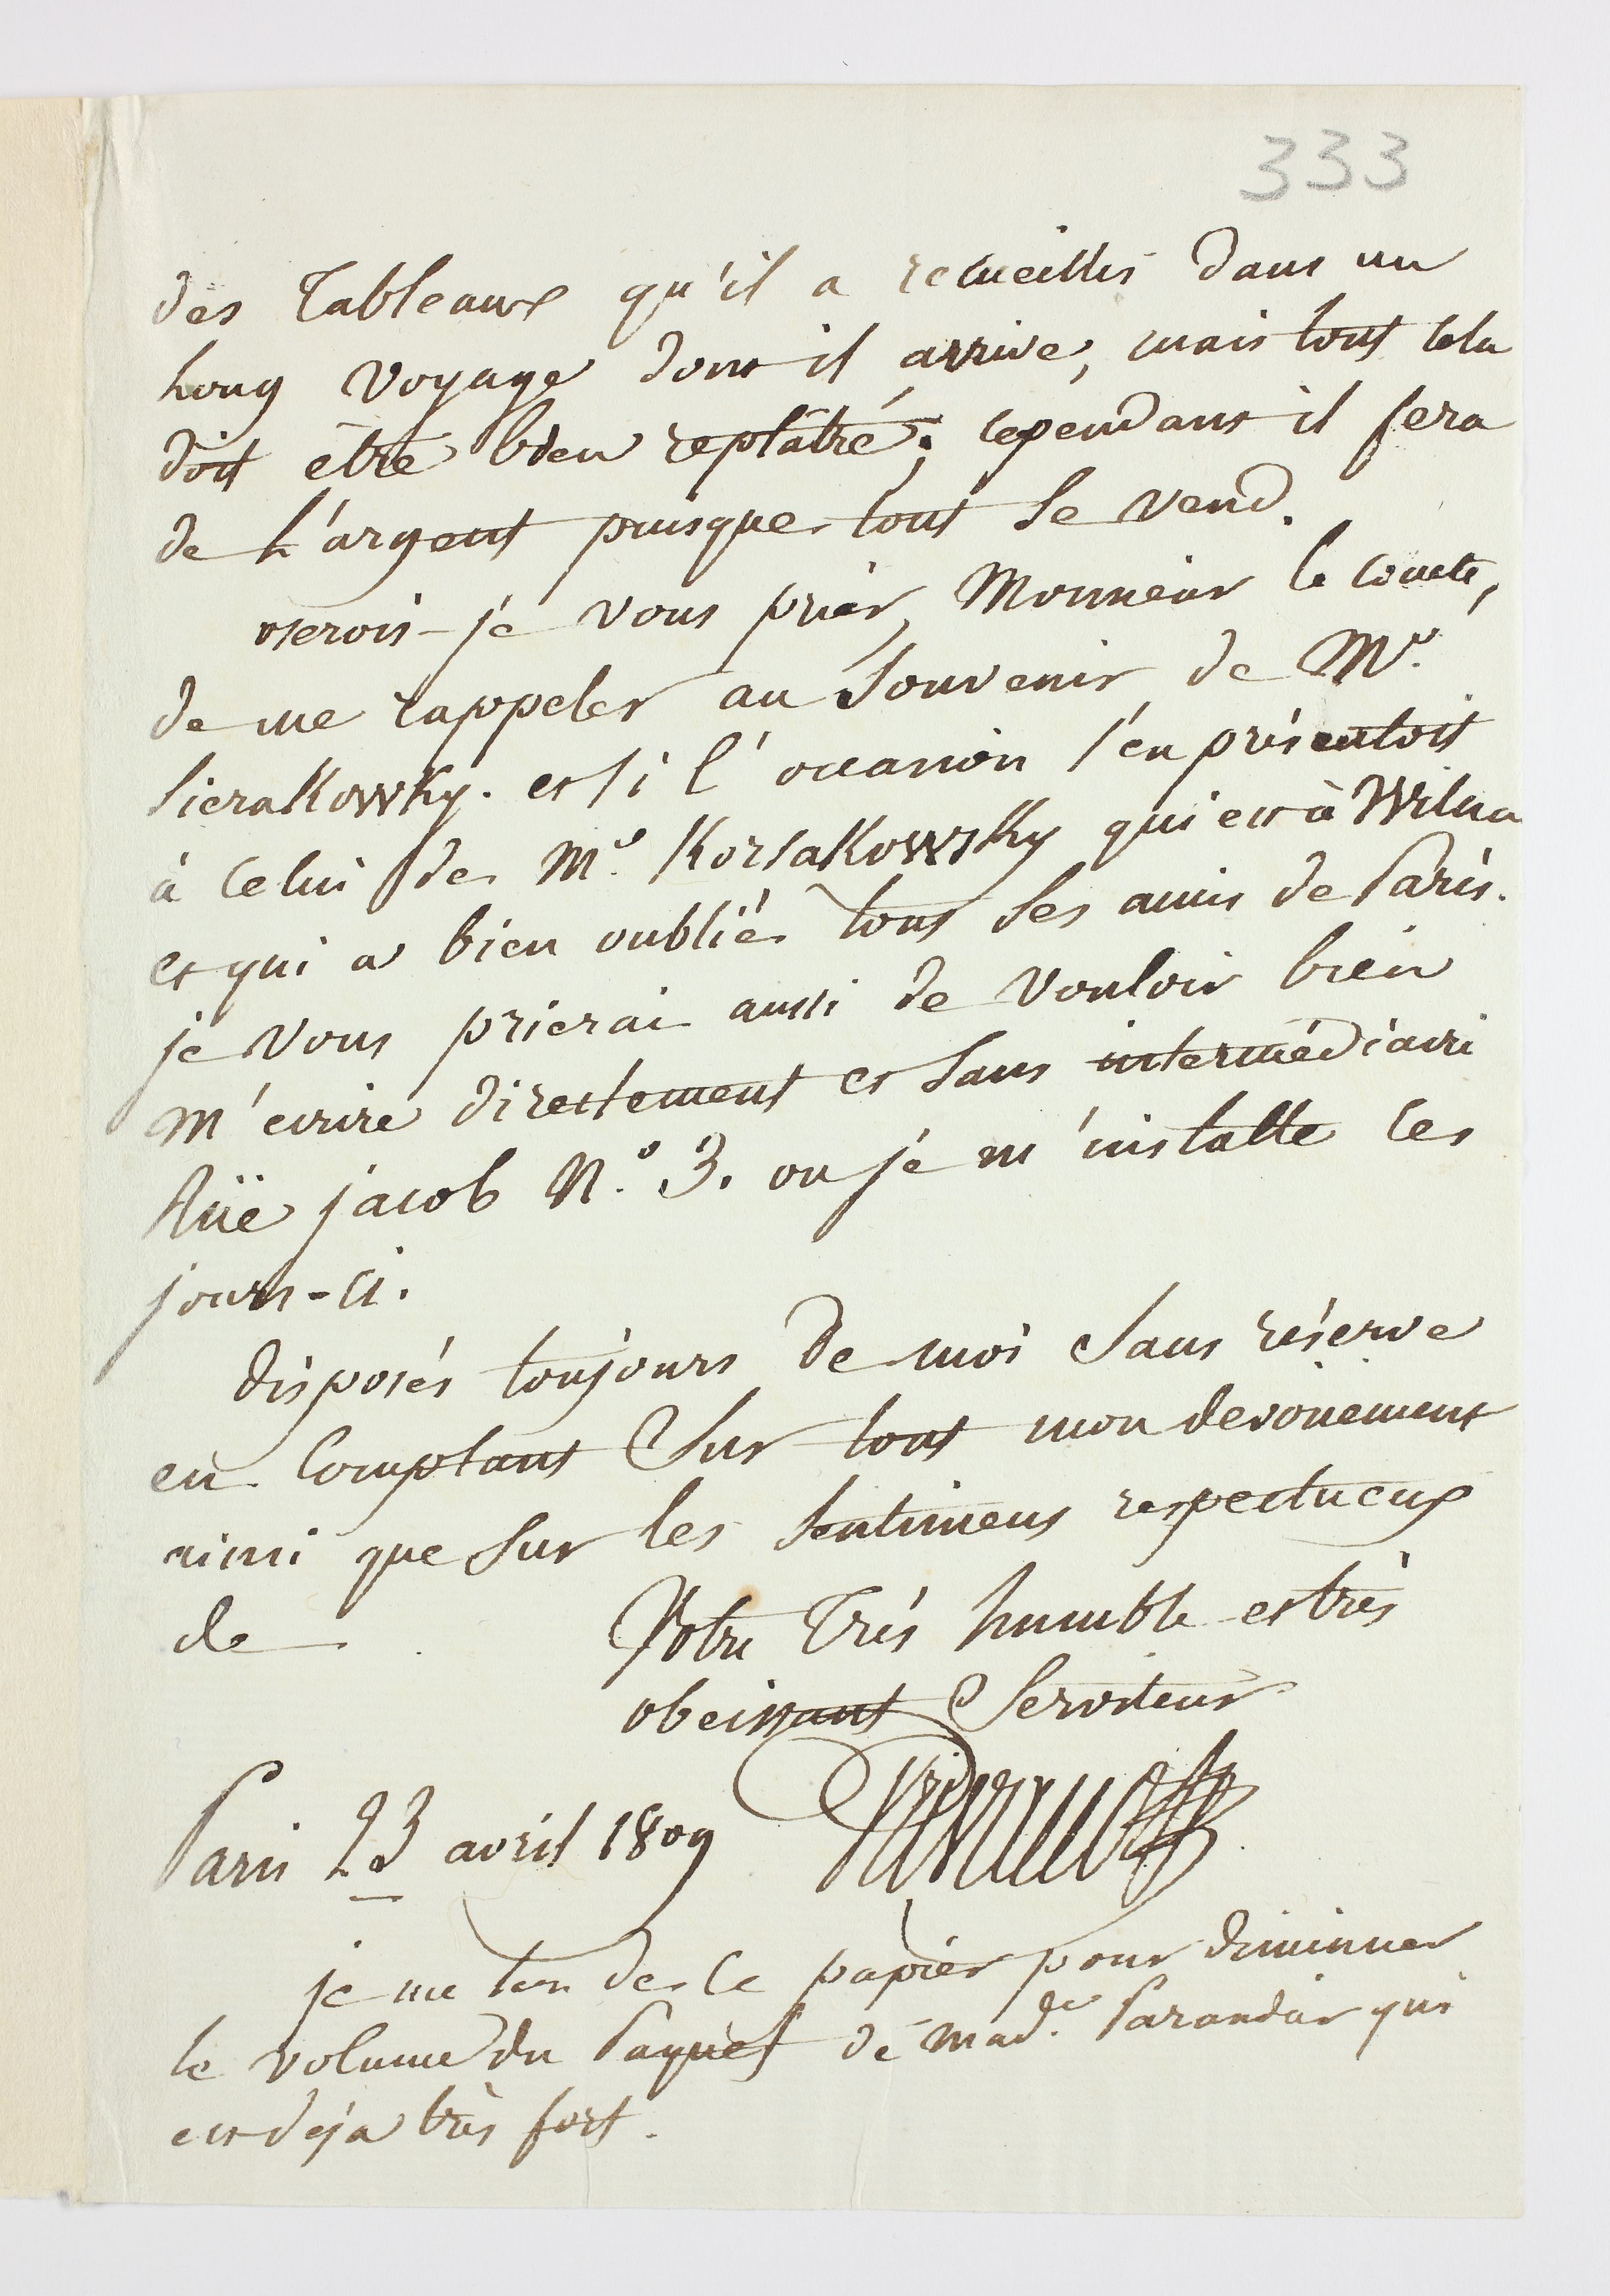 333
des Tableaux qu'il a recueillis dans un
Long voyage dont il arrive, mais tout cela
doit être bien replâtré; cependant il fera
de L'argent puisque tout se vend.
oserois-je vous prier, Monsieur le comte,
de me rappeler au souvenir de Mr.
sierakowky. et si l'occasion s'en présentoit
à celui de Mr. Korsakowsky qui est à Wilna
et qui a bien oublié tous ses amis de Paris.
je vous prierai aussi de vouloir bien
m'ecrire directement et sans intermédiaire
Rüe jacob N.o 3. ou je m'installe ces
jours-ci.
disposés toujours de moi sans réserve
en comptant sur tout mon devouement
ainsi que sur les sentimens respectueux
de
Votre très humble et très
obeissant Serviteur
Paris 23 avril 1809
je me sers de ce papier pour diminuer
le volume du Paquet de mad.e qui
est deja très fort.